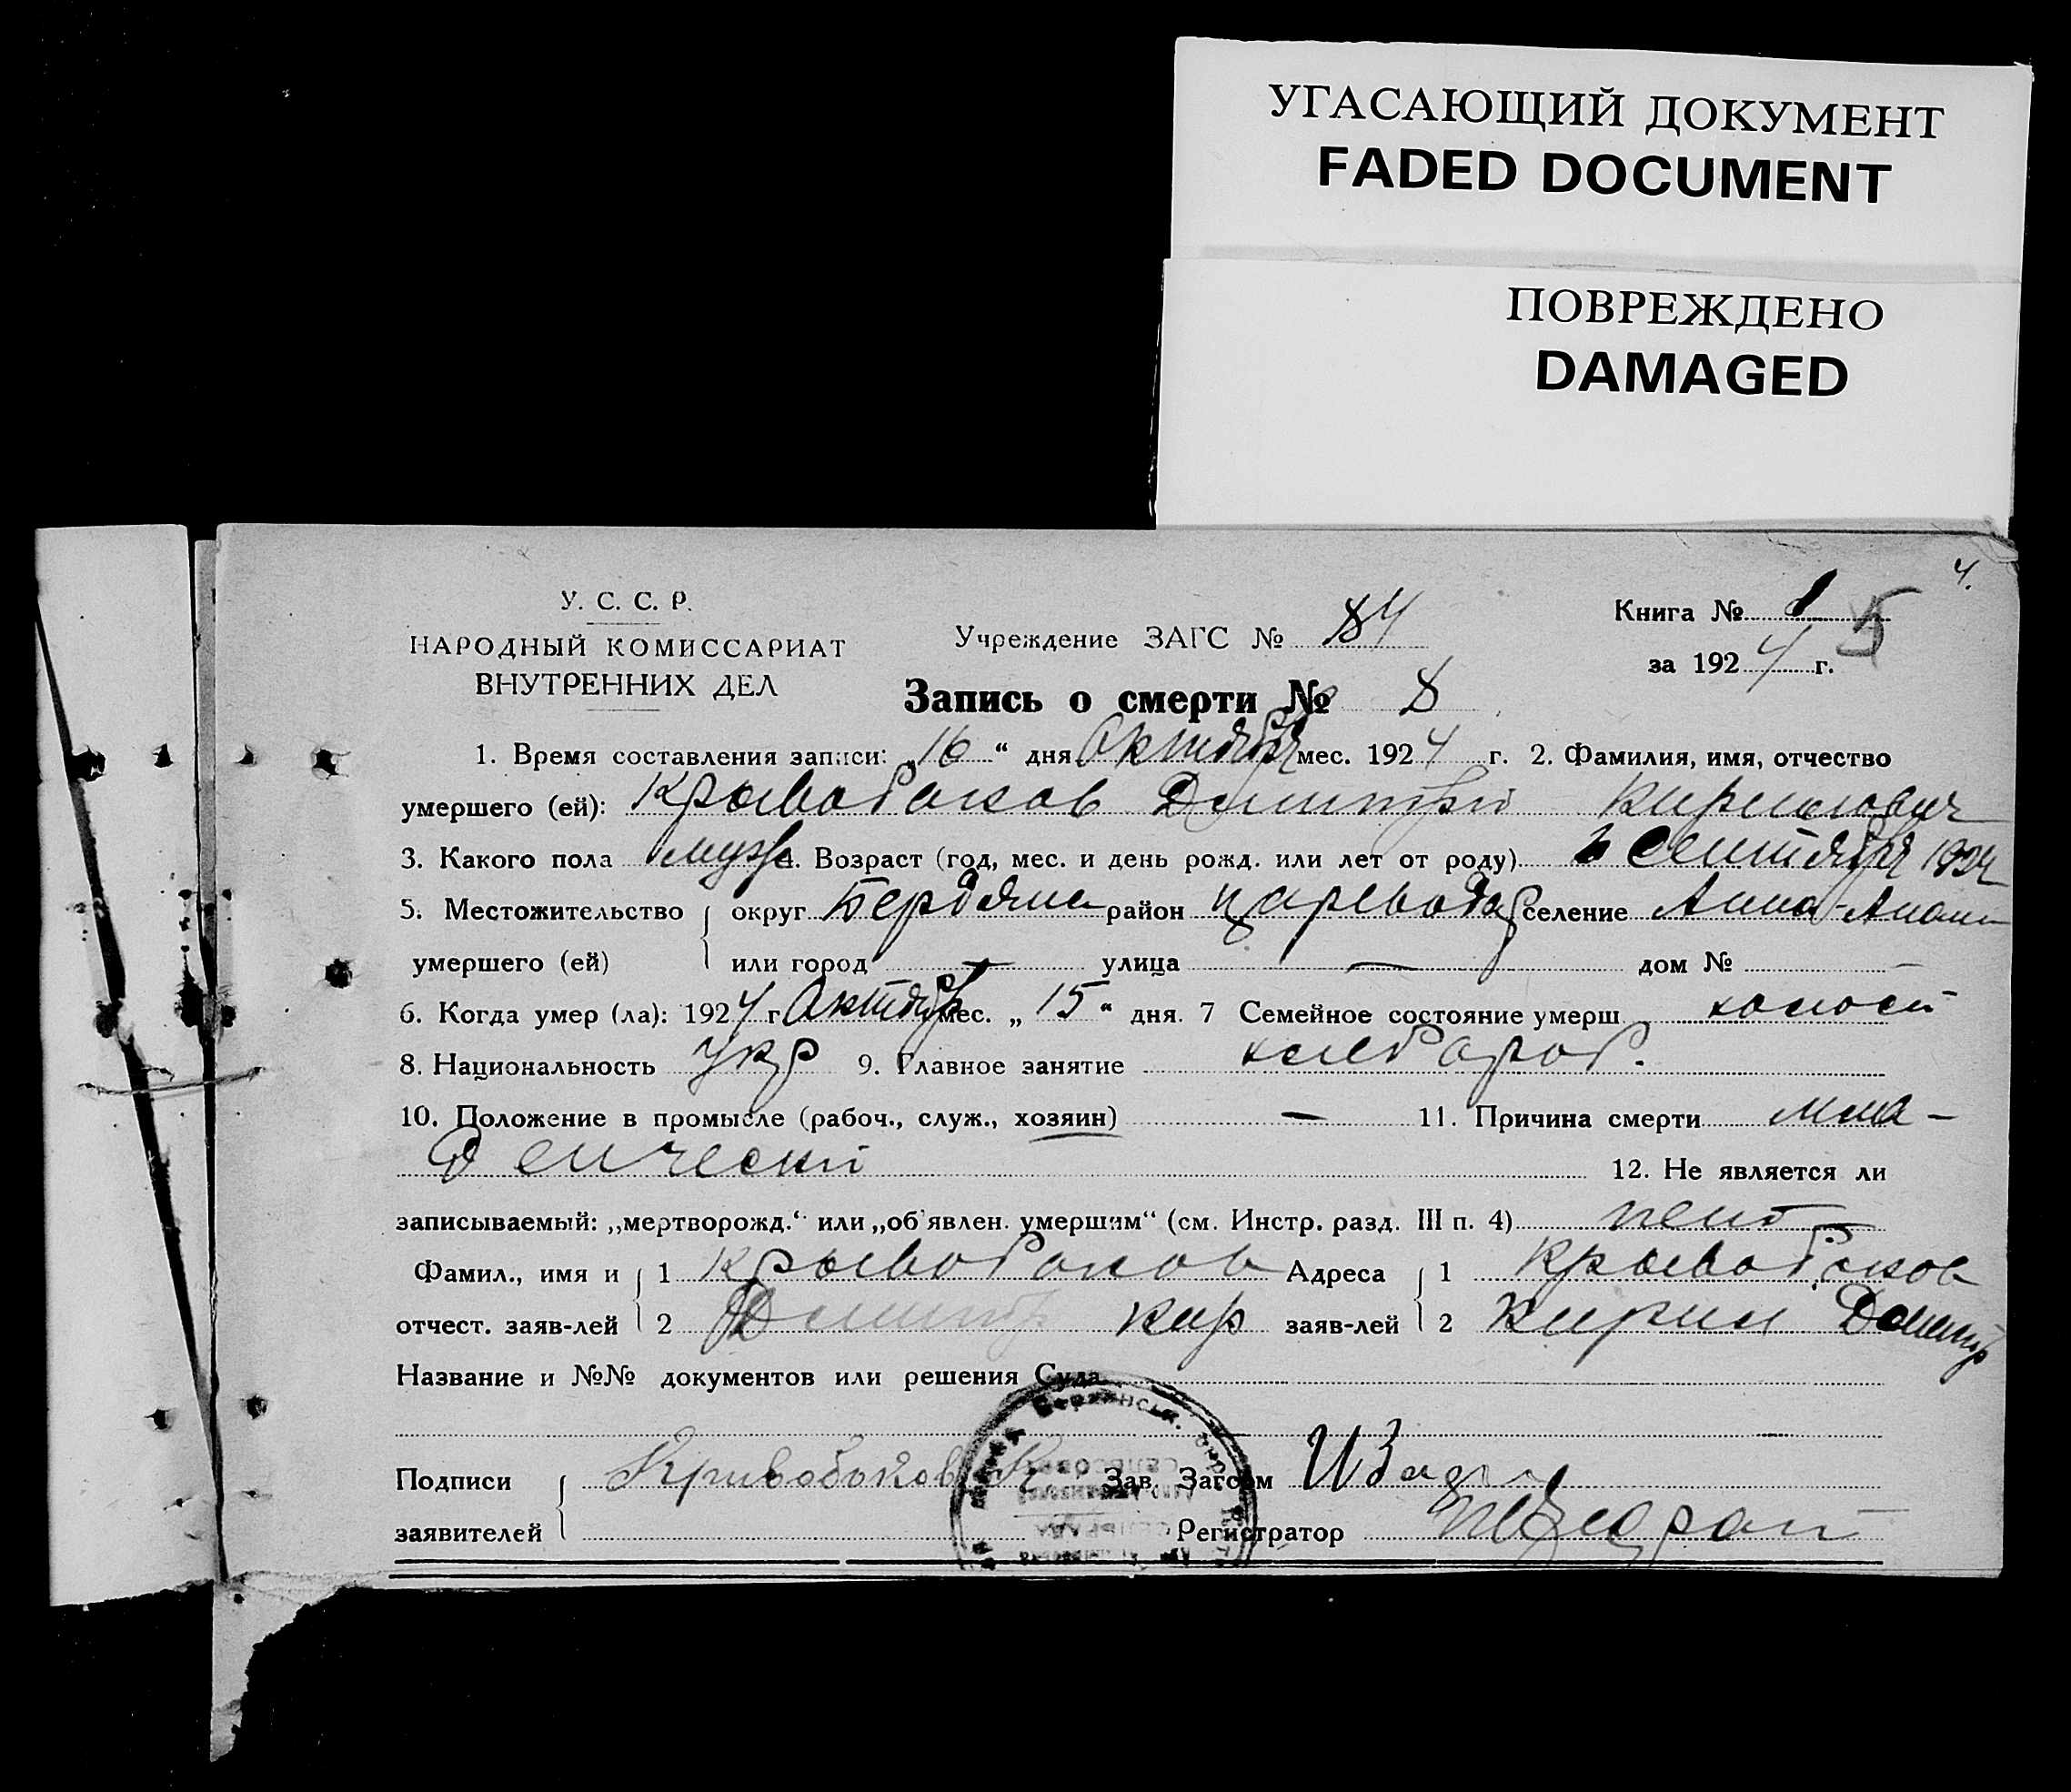 УГАСАЮЩИЙ ДОКУМЕНТ
FADED DOCUMENT
ПОВРЕЖДЕНО
DAMAGED
4.
У. С. С. Р.
НАРОДНЫЙ КОМИССАРИАТ
ВНУТРЕННИХ ДЕЛ
Учреждение ЗАГС № 84
Книга № 1 5
за 1924 г.
Запись о смерти № 8
1. Время составления записи: „16“ дня Октября мес. 1924 г. 2. Фамилия, имя, отчество
умершего (ей): Крывобоков Дмитрий Кирилович
3. Какого пола муж 4. Возраст (год, мес. и день рожд. или лет от роду) Сентября 1924
5. Местожительство округ Бердянс район Царевода селение Анна-
умершего (ей) или город — улица — дом № —
6. Когда умер (ла): 1924 г. Октябр мес. „15“ дня. 7 Семейное состояние умерш. холост
8. Национальность укр 9. Главное занятие хлебороб.
10. Положение в промысле (рабоч., служ., хозяин) — 11. Причина смерти мла-
денчески 12. Не является ли
записываемый: „мертворожд.“ или „об'явлен. умершим“ (см. Инстр. разд. III п. 4) нет
Фамил., имя и 1 Крывобоков Адреса 1 Крывобоков
отчест. заяв-лей 2 Дмитр Кир заяв-лей 2 Кирил Дмитр
Название и №№ документов или решения Суда
Подписи Кривобоков К Зав. Загсом
заявителей Регистратор